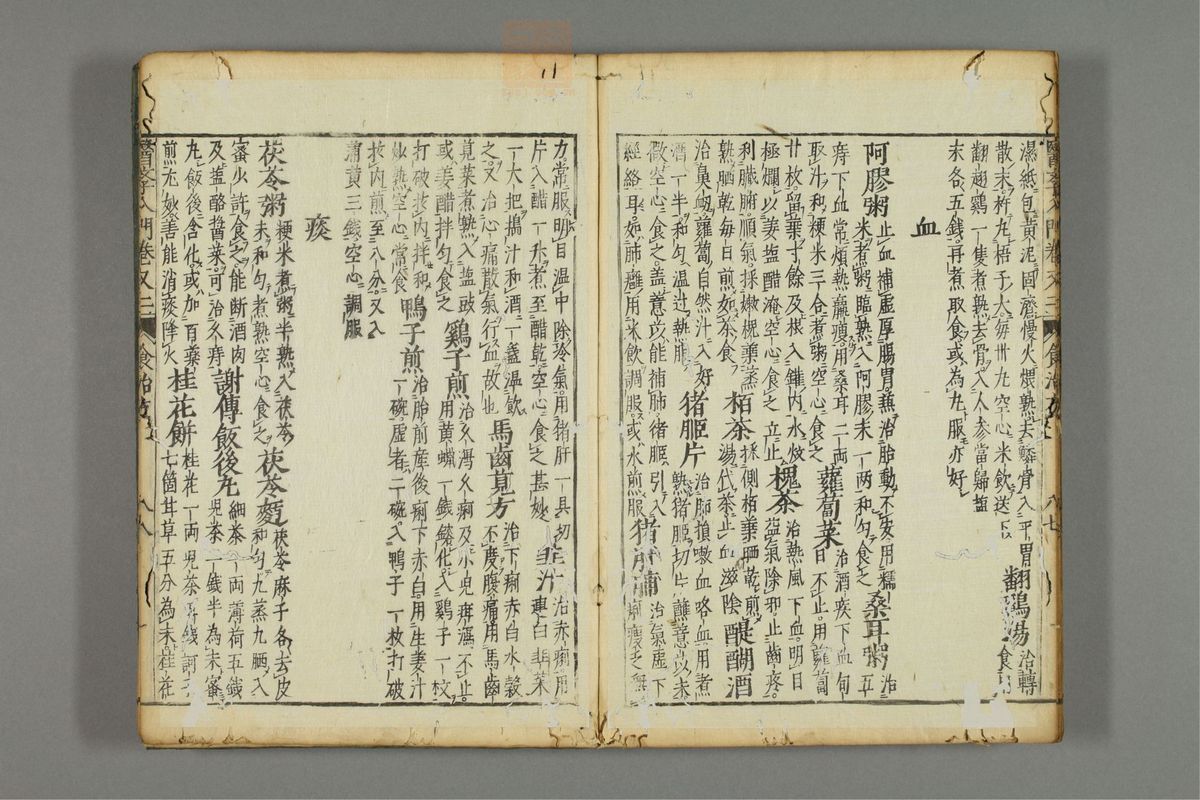 濕紙包黄泥固濟慢火煨熟去鱗骨入平胃
散末杵丸梧子大每卅丸空心米飲送下 翻鷄湯 治轉
翻翅鷄一隻煮熟去骨入人參當歸鹽 食
末各五錢再煮取食或為丸服亦好
血
阿膠粥 止血補虛厚腸胃兼治胎動不安用糯
米煮粥臨熟入阿膠末一两和匀食之 桑耳粥 治五
痔下血常煩熱羸瘦用桑耳二两
取汁和粳米三合煮粥空心食之 蘿蔔菜 治酒疾下血旬
日不止用蘿蔔
廿枚留葉寸餘及根入鑵内水煮
極爛以姜鹽醋淹空心食之立止 槐茶 治熱風下血明目
益氣除邪止齒疼
利臟腑順氣採嫩槐葉蒸
熟晒乾每日煎如茶食 栢茶 採側栢葉晒乾煎
湯代茶止血滋陰 醍醐酒
治鼻衂蘿蔔自然汁入好
酒一半和匀溫過熱服 猪胵片 治肺損嗽血咯血用煮
熟猪胵切片蘸薏苡末
微空心食之盖薏苡能補肺猪胵引入
經絡耳如肺癰用米飲調服或水煎服 治氣虛下
痢瘦乏無
力常服明目温中除冷氣用猪肝一具切
片入醋一升煮至醋乾空心食之甚妙 治赤痢用
連白韭菜
一大把搗汁和酒一盞溫飲
之又治心痛散氣行血故也 馬齒莧方 治下痢赤白水穀
不度腹痛用馬齒
莧菜煮熟入鹽豉
或姜醋拌匀食之 鷄子煎 治久瀉久痢及小兒疳瀉不止
用黄蠟一錢鎔化入鷄子一枚
打破拔内拌和
炒熟空心常食 鴨子煎 治胎前産後痢下赤白用生姜汁
一碗虛者二碗入鴨子一枚打破
拔内煎至八分又入
蒲黄三錢空心調服
痰
茯苓粥 粳米煮粥半熟入茯苓
末和匀煮熟空心食之 茯苓麪 茯苓麻子各去皮
和匀九蒸九晒入
蜜少許食之能断酒肉
及鹽酪醬菜可治久痔 謝傳飯後丸 細茶一两薄荷五錢
兒茶一錢半為末蜜
丸飯後含化或加百藥
煎尤妙善能消痰降火 桂花餅 桂花一两兒茶
七箇甘草五分為末桂花